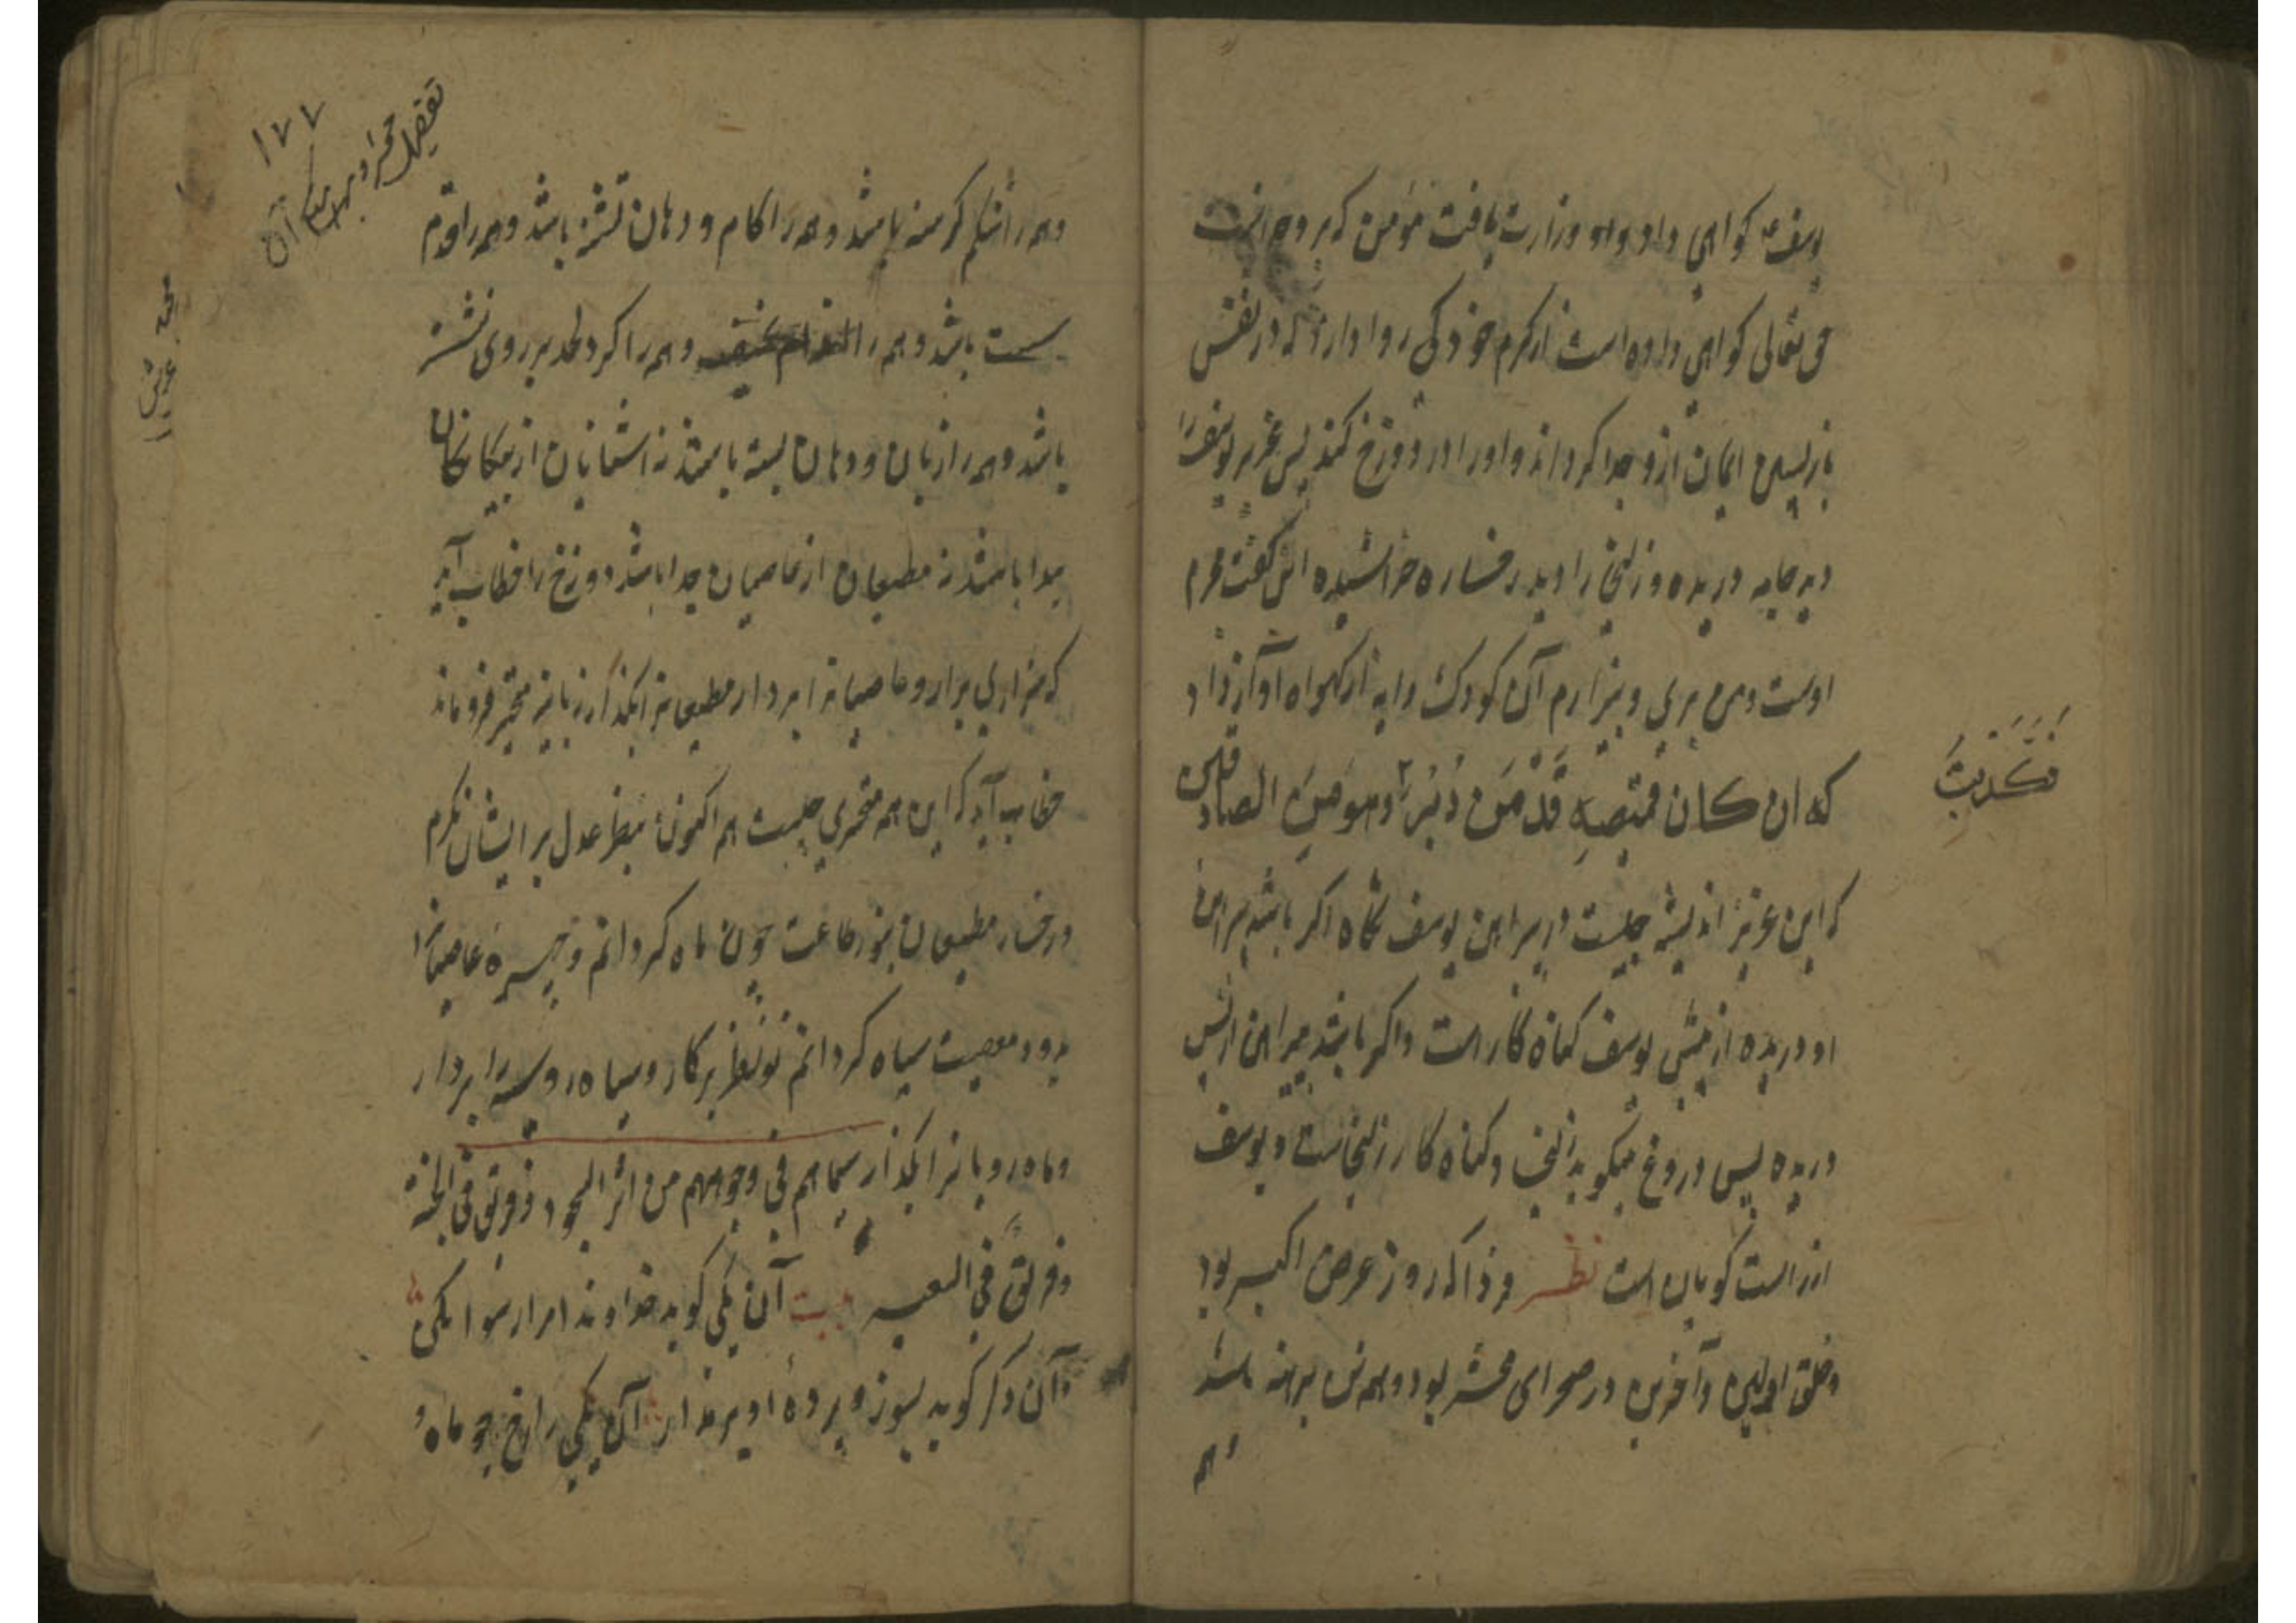 یوسف ع کواهی داد واو وزارت یافت مؤمن که بر وحدانیت
حق تعالی کواهی داده است از کرم خود کی روا دارد که در نفس
بازپسین ایمان ازو جدا کرداند واورا در دوزخ کند پس عزیز یوسف را
دید جامه دریده وزلیخا را دید رخساره خراشیده این کفت مجرم
اوست ومن بری وبیزارم آن کودک دایه از کهواره آواز داد
که ان کان قمیصه قد من دبر وهو من الصادقین
فکذبت
که این عزیز اندیشه چیست در پیراهن یوسف نکاه اکر باشد پیراهن
او دریده از پیش یوسف کناه کار است واکر باشد پیراهن از پس
دریده پس دروغ میکوید زلیخا وکناه کار زلیخاست ویوسف
از راست کویان است نظر فردا که روز عرض اکبر بود
وخلق اولین وآخرین در صحرای محشر بود وهمه تن برهنه باشد
وهمه
۱۷۷
تفصیل حشر و بیان آن
وهمه را شکم کرسنه باشد وهمه را کام و دهان تشنه باشد وهمه را قدم
سست باشد وهمه را وهمه را کرد لحد بر روی نشسته
باشد وهمه را زبان و دهان بسته باشد نه آشنایان از بیکانکان
پیدا باشند نه مطیعان از عاصیان جدا باشد دوزخ را خطاب آید
که سر از بر آر وعاصیانرا بردار مطیعانرا بکذار زبانیه متحیر فروماند
خطاب آید که این همه متحیری چیست هم اکنون بنظر عدل بر ایشان نکرم
ورخسار مطیعان بنور طاعت چون ماه کردانم وچهره عاصیانرا
بدود معصیت سیاه کردانم تو نظر بر کار وسیاه رویانرا بردار
وماه رویانرا بکذار سیماهم فی وجوههم من اثر السجود فریق فی الجنة
وفریق فی السعیر بیت آن یکی کوید خداوندا مرا رسوا مکن
وآن دکر کوید بسوز و پرده او بر مدار آن یکی را رخ چو ماه و